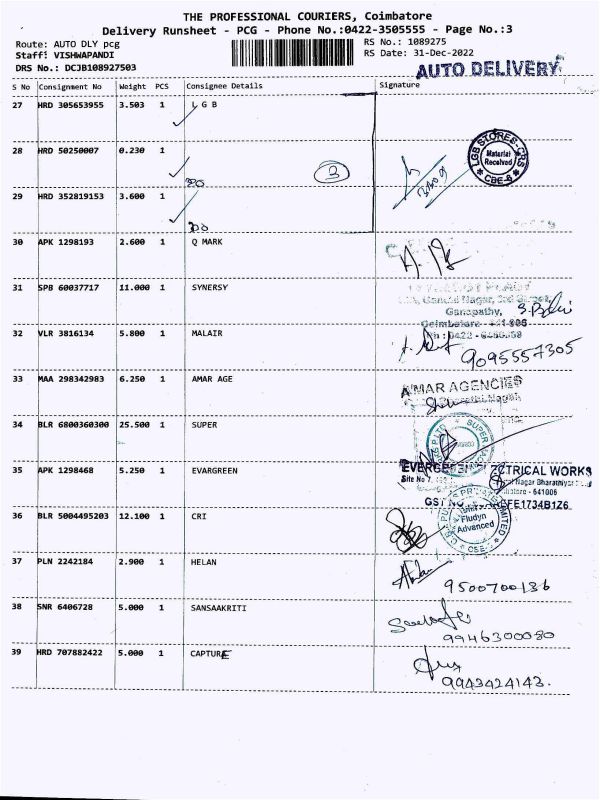 THE PROFESSIONAL COURIERS, Coimbatore
Delivery Runsheet - PCG - Phone No.:0422-3505555 - Page No.:3
Route: AUTO DLY pcg
RS No.: 1089275
Staff: VISHWAPANDI
RS Date: 31-Dec-2022
DRS No.: DCJB108927503
AUTO DELIVERY
S No Consignment No Weight PCS Consignee Details Signature
27 HRD 305653955 3.503 1 L G B
28 HRD 50250007 0.230 1
LGB STORES-CPS
Material
Received
CBE-6
3
29 HRD 352819153 3.600 1
30 APK 1298193 2.600 1 Q MARK
31 SPB 60037717 11.000 1 SYNERSY
Ganapathy,
Coimbatore - 641 006
32 VLR 3816134 5.800 1 MALAIR
9095557305
33 MAA 298342983 6.250 1 AMAR AGE
AMAR AGENCIES
34 BLR 6800360300 25.500 1 SUPER
SUPER
35 APK 1298468 5.250 1 EVARGREEN
Site No 7,
Nagar Bharathiyar
- 641006
GST NO
36 BLR 5004495203 12.100 1 CRI
PRIVATE LIMITED
Fludyn
Advanced
CBE
37 PLN 2242184 2.900 1 HELAN
9500700136
38 SNR 6406728 5.000 1 SANSAAKRITI
9946300080
39 HRD 707882422 5.000 1 CAPTURE
9943424143.